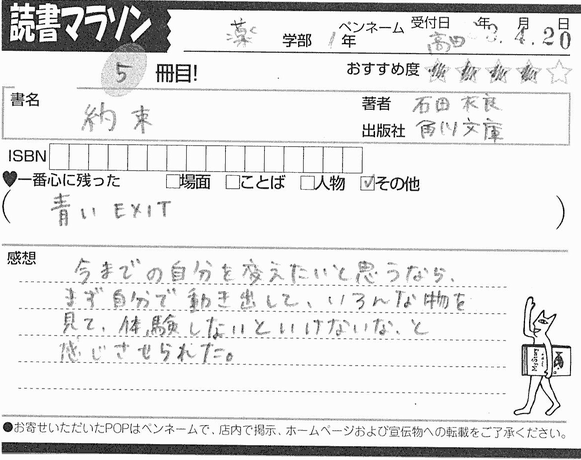 読書マラソン
薬 学部 1年 ペンネーム 高田 受付日 年 3. 月 4. 日 20
5 冊目!
おすすめ度 ★★★★☆
書名 約束
著者 石田衣良
出版社 角川文庫
ISBN
♥一番心に残った □場面 □ことば □人物 ☑その他
( 青いEXIT )
感想
今までの自分を変えたいと思うなら、
まず自分で動き出して、いろんな物を
見て、体験しないといけないな、と
感じさせられた。
●お寄せいただいたPOPはペンネームで、店内で掲示、ホームページおよび宣伝物への転載をご了承ください。